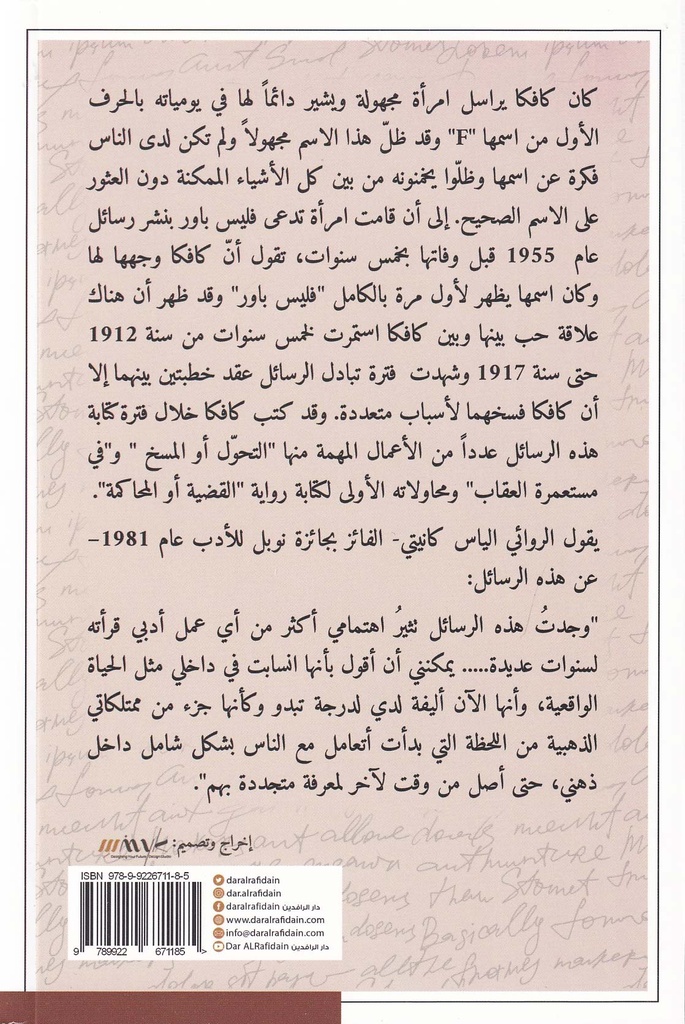 كان كافكا يراسل امرأة مجهولة ويشير دائماً لها في يومياته بالحرف
الأول من اسمها "F" وقد ظلّ هذا الاسم مجهولاً ولم تكن لدى الناس
فكرة عن اسمها وظلّوا يخمنونه من بين كل الأشياء الممكنة دون العثور
على الاسم الصحيح. إلى أن قامت امرأة تدعى فليس باور بنشر رسائل
عام 1955 قبل وفاتها بخمس سنوات، تقول أنّ كافكا وجهها لها
وكان اسمها يظهر لأول مرة بالكامل "فليس باور" وقد ظهر أن هناك
علاقة حب بينها وبين كافكا استمرت لخمس سنوات من سنة 1912
حتى سنة 1917 وشهدت فترة تبادل الرسائل عقد خطبتين بينهما إلا
أن كافكا فسخهما لأسباب متعددة. وقد كتب كافكا خلال فترة كتابة
هذه الرسائل عدداً من الأعمال المهمة منها "التحوّل أو المسخ " و"في
مستعمرة العقاب" ومحاولاته الأولى لكتابة رواية "القضية أو المحاكمة".
يقول الروائي الياس كانيتي- الفائز بجائزة نوبل للأدب عام 1981–
عن هذه الرسائل:
"وجدتُ هذه الرسائل تثيرُ اهتمامي أكثر من أي عمل أدبي قرأته
لسنوات عديدة..... يمكنني أن أقول بأنها انسابت في داخلي مثل الحياة
الواقعية، وأنها الآن أليفة لدي لدرجة تبدو وكأنها جزء من ممتلكاتي
الذهبية من اللحظة التي بدأت أتعامل مع الناس بشكل شامل داخل
ذهني، حتى أصل من وقت لآخر لمعرفة متجددة بهم".
إخراج وتصميم:
ISBN 978-9-9226711-8-5
9 789922 671185 >
daralrafidain
dar.alrafidain
daralrafidain دار الرافدين
www.daralrafidain.com
info@daralrafidain.com
Dar ALRafidain دار الرافدين